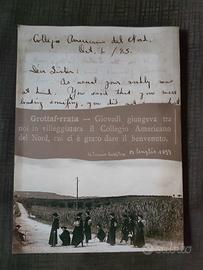 Collegio Americano del Nord,
Oct. 6 / 85.
Dear Sister:
As usual your weekly was
at hand. You said that you were
Grottaferrata — Giovedì giungeva tra
noi in villeggiatura il Collegio Americano
del Nord, cui ci è grato dare il benvenuto.
luglio 1899
subito.it